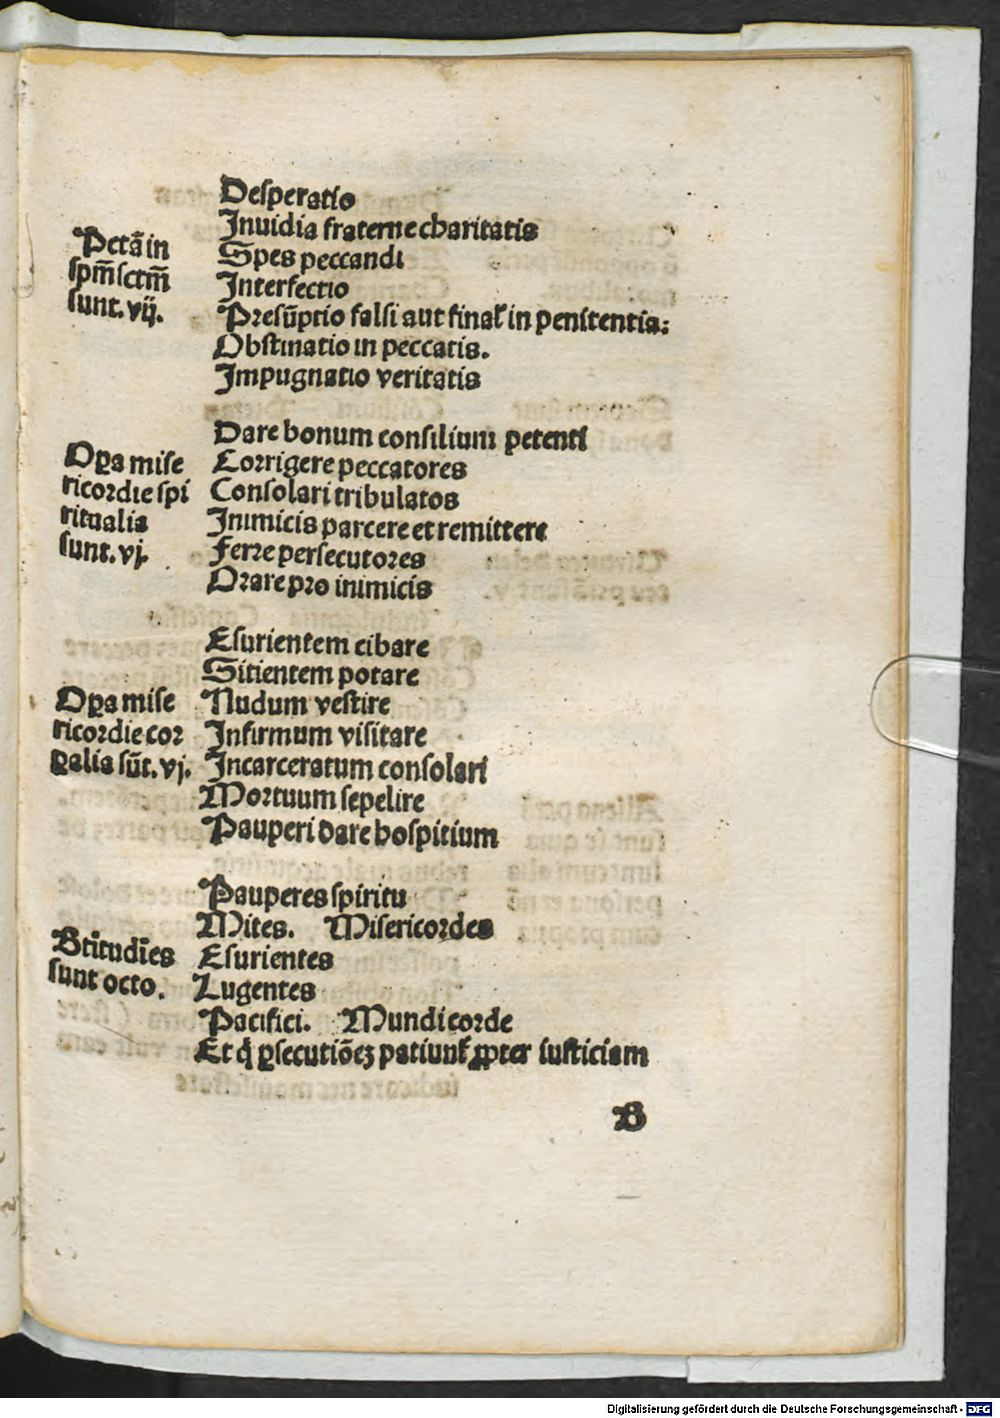 Desperatio
Inuidia fraterne charitatis
Pctā in
spm̄ sctm̄
sunt. vij.
Spes peccandi
Interfectio
Presūptio falsi aut final' in penitentia:
Obstinatio in peccatis.
Impugnatio veritatis
Opa mise
ricordie spi
ritualia
sunt. vj.
Dare bonum consilium petenti
Corrigere peccatores
Consolari tribulatos
Inimicis parcere et remittere
Ferre persecutores
Orare pro inimicis
Opa mise
ricordie cor
ꝑalia sūt. vj.
Esurientem cibare
Sitientem potare
Nudum vestire
Infirmum visitare
Incarceratum consolari
Mortuum sepelire
Pauperi dare hospitium
Btitudīes
sunt octo.
Pauperes spiritu
Mites. Misericordes
Esurientes
Lugentes
Pacifici. Mundi corde
Et q̇ ꝑsecutiōeꝫ patiunt̄ ꝓpter iusticiam
B
Digitalisierung gefördert durch die Deutsche Forschungsgemeinschaft - DFG